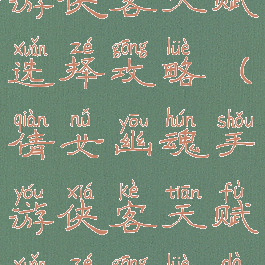 游侠客天赋
xuǎn zé gōng lüè
选择攻略(
qiàn nǚ yōu hún shǒu
倩女幽魂手
yóu xiá kè tiān fù
游侠客天赋
xuǎn zé gōng lüè